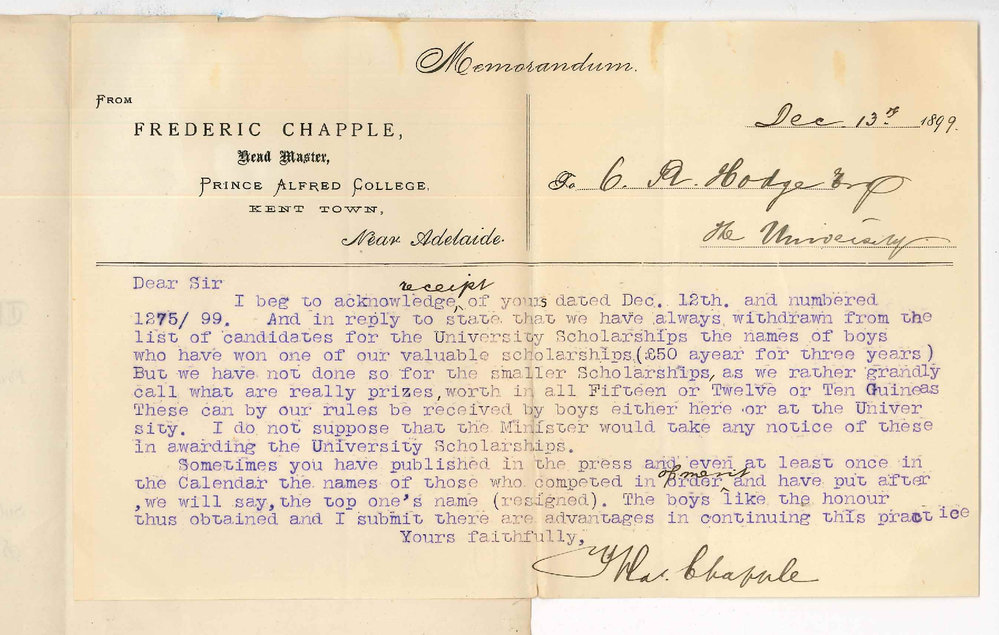 Memorandum.
FROM
FREDERIC CHAPPLE,
Head Master,
PRINCE ALFRED COLLEGE,
KENT TOWN,
Near Adelaide.
Dec. 13th 1899.
To C. R. Hodge Esq
The University
Dear Sir
receipt
I beg to acknowledge of yours dated Dec. 12th. and numbered
1275/ 99. And in reply to state that we have always withdrawn from the
list of candidates for the University Scholarships the names of boys
who have won one of our valuable scholarships(£50 ayear for three years)
But we have not done so for the smaller Scholarships, as we rather grandly
call what are really prizes,worth in all Fifteen or Twelve or Ten Guineas
These can by our rules be received by boys either here or at the Univer
sity. I do not suppose that the Minister would take any notice of these
in awarding the University Scholarships.
Sometimes you have published in the press and even at least once in
of merit
the Calendar the names of those who competed in order and have put after
,we will say,the top one's name (resigned). The boys like the honour
thus obtained and I submit there are advantages in continuing this practice
Yours faithfully,
Chapple